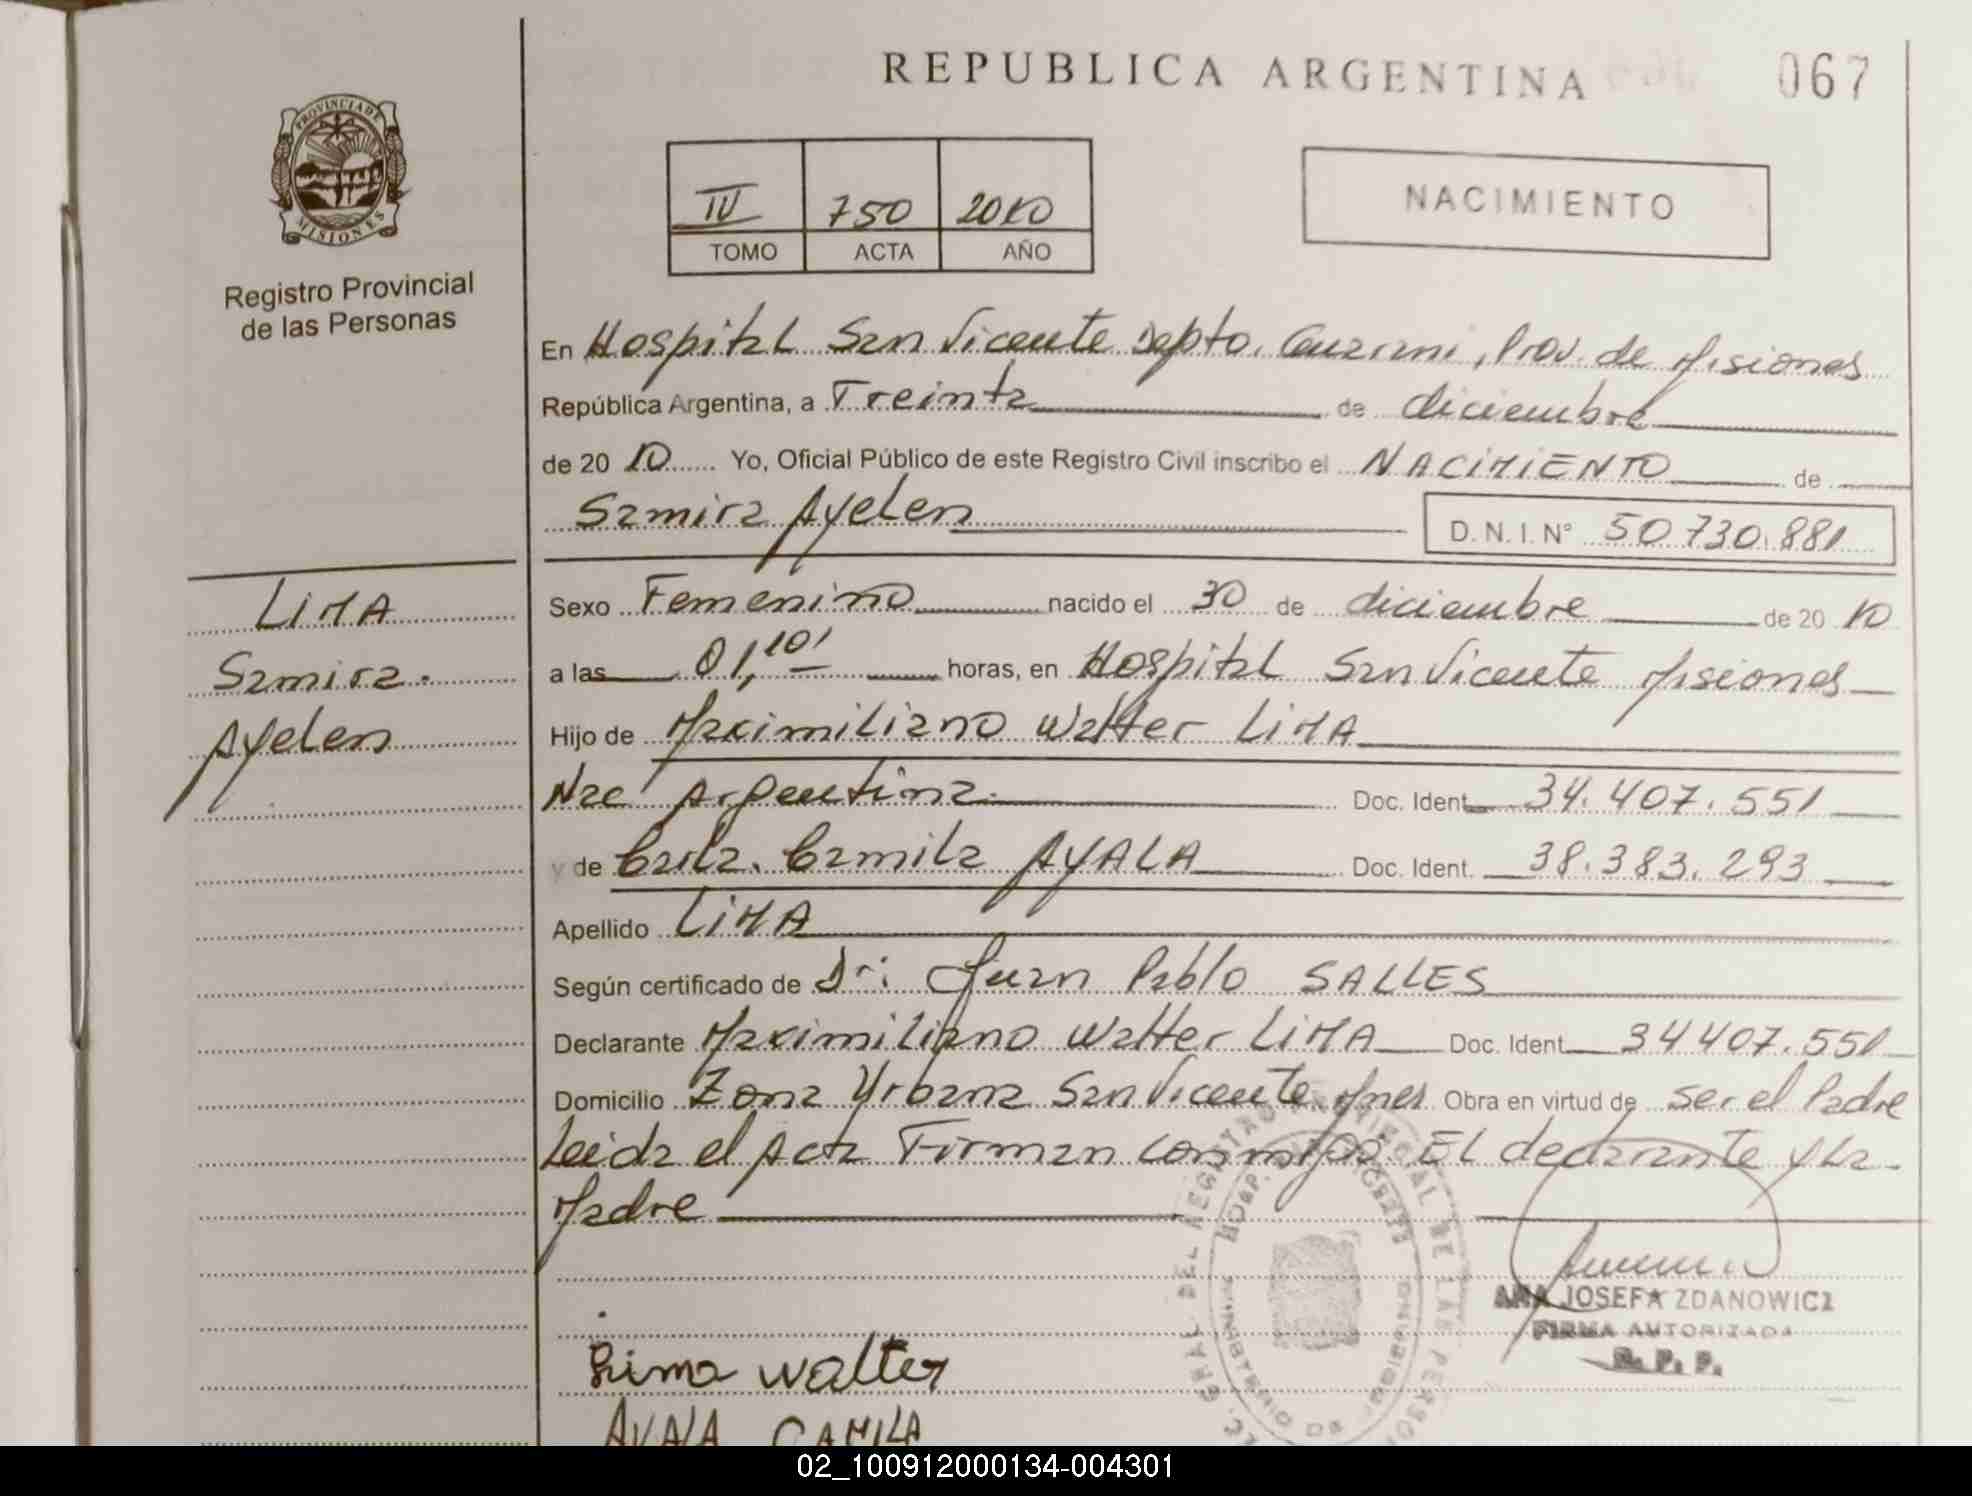 REPUBLICA ARGENTINA
067
PROVINCIA DE
MISIONES
Registro Provincial
de las Personas
IV 750 2010
TOMO ACTA AÑO
NACIMIENTO
En Hospital San Vicente Depto. Guarani, Prov. de Misiones
República Argentina, a Treinta de diciembre
de 20 10 Yo, Oficial Público de este Registro Civil inscribo el NACIMIENTO de
Samira Ayelen D.N.I. N° 50.730.881
LIMA
Samira
Ayelen
Sexo Femenino nacido el 30 de diciembre de 20 10
a las 01,10' horas, en Hospital San Vicente Misiones
Hijo de Maximiliano Walter LIMA
Nac Argentina Doc. Ident. 34.407.551
y de Carla Camila AYALA Doc. Ident. 38.383.293
Apellido LIMA
Según certificado de Dr: Juan Pablo SALLES
Declarante Maximiliano Walter LIMA Doc. Ident. 34407.551
Domicilio Zona Urbana San Vicente Mnes Obra en virtud de ser el Padre
Leida el Acta Firman conmigo: EL declarante y La
Madre
ANA JOSEFA ZDANOWICZ
FIRMA AUTORIZADA
R. P. P.
Lima Walter
AYALA CAMILA
02_100912000134-004301